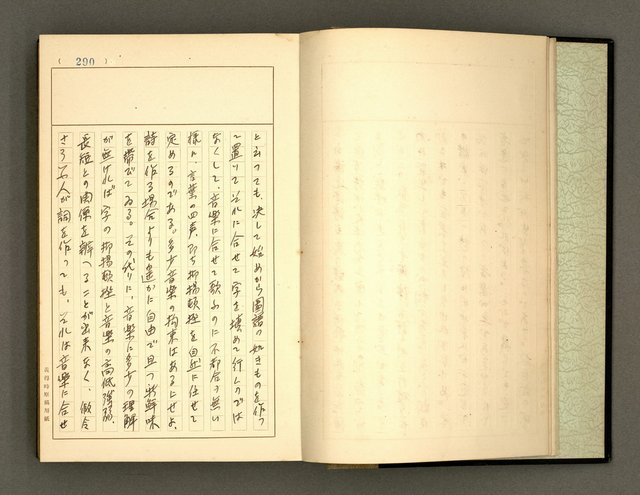 ( 290 )
と云つても、決して始めから圖譜の如きものを作つ
て置いてそれに合せて字を塡めて行くのでは
なくして、音樂に合せて歌ふのに不都合の無い
樣に、言葉の四声、即ち抑揚頓挫を自然に任せて
定めるのである。多少音樂の拘束はあるにせよ、
詩を作る場合よりも遙かに自由で且つ新鮮味
を帶びてゐる。その代りに、音樂に多少の理解
が無ければ字の抑揚頓挫と音樂の高低強弱、
長短との関係を辨へることが出來なく、假令
さう云ふ人が詞を作つても、それは音樂に合せ
長得時原稿用紙